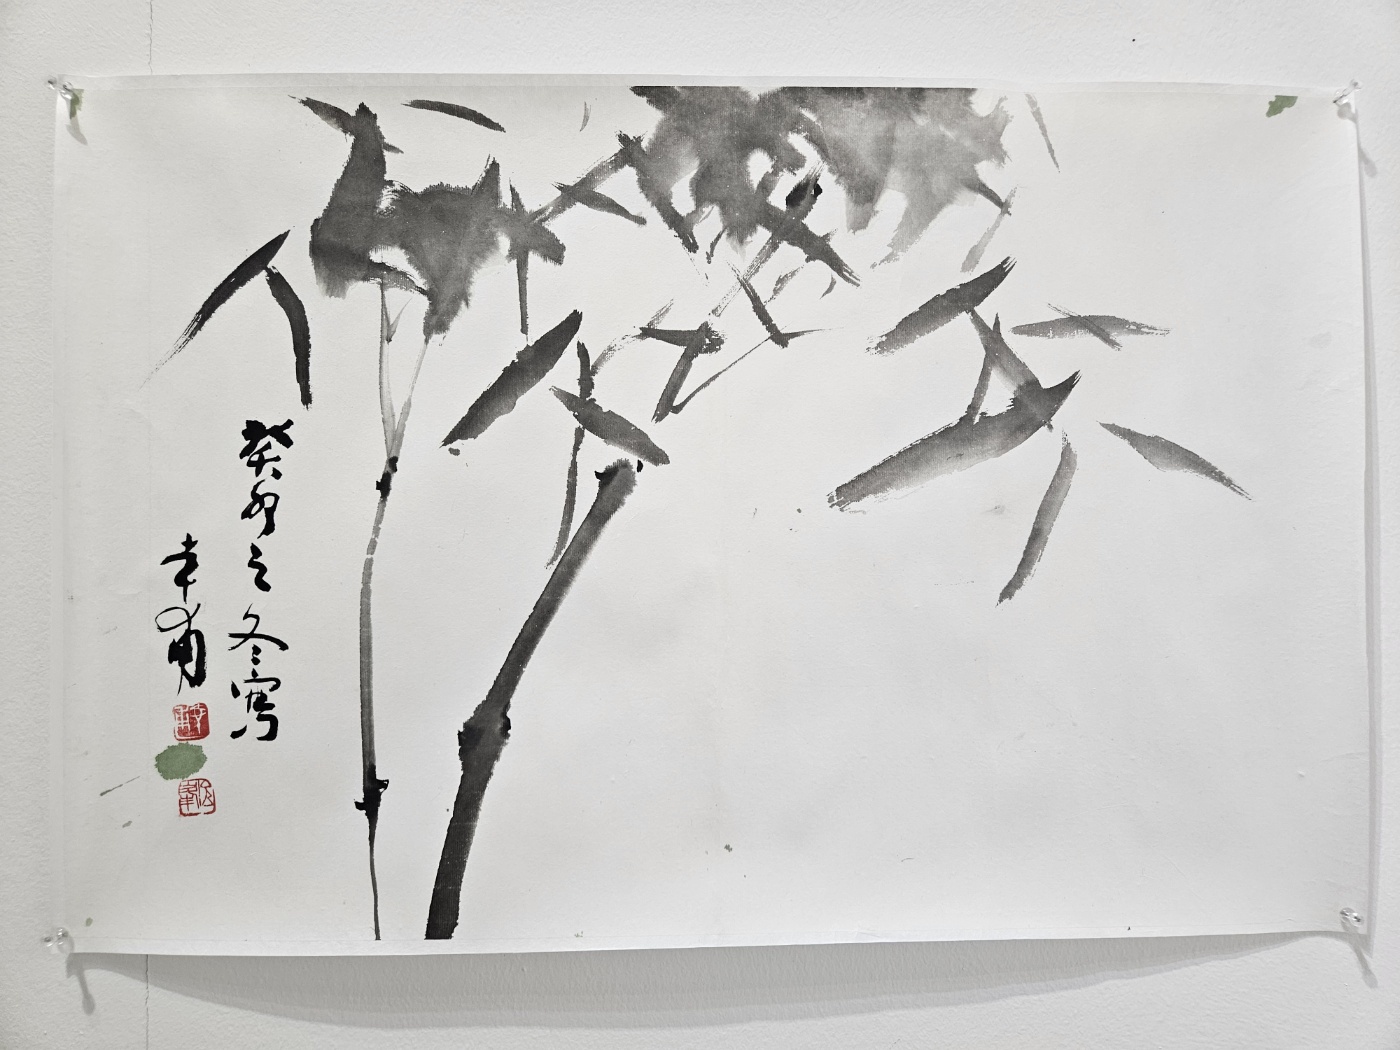 癸卯之冬寫
幸甫